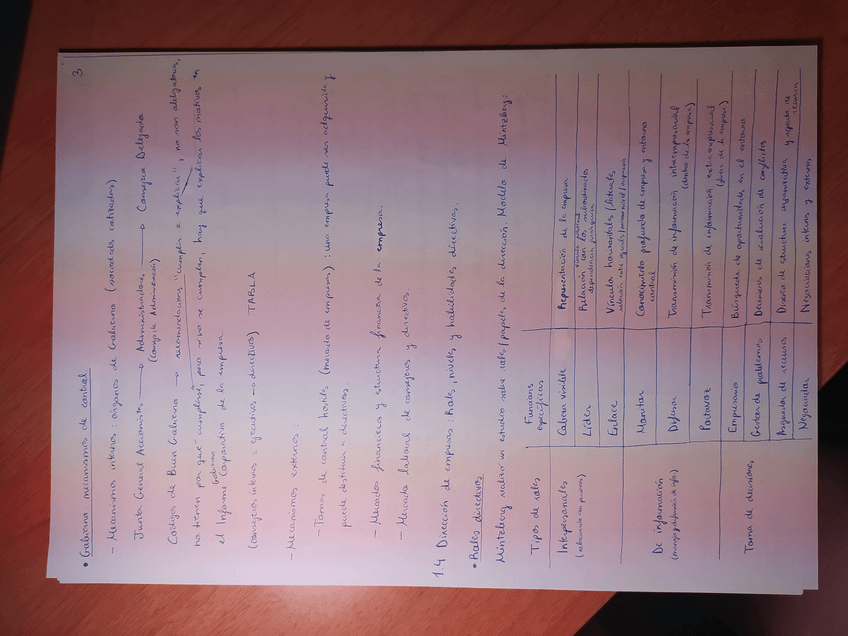 3
• Gobierno mecanismos de control
- Mecanismos internos: órganos de Gobierno (sociedades cotizadas)
Junta General Accionista → Administradores → Consejero Delegado
(Consejo de Administración)
Códigos de Buen Gobierno → recomendaciones "cumplir o explicar", no son obligatorios,
no tienen por qué cumplirse, pero si no se cumplen, hay que explicar los motivos en
el Informe Gobierno Corporativo de la empresa.
(consejeros internos = ejecutivos → directivos) TABLA
- Mecanismos externos:
- Tomas de control hostiles (mercado de empresas): una empresa puede ser adquirida y
puede destituir a directivos.
- Mercados financieros y estructura financiera de la empresa.
- Mercado laboral de consejeros y directivos.
1.4 Dirección de empresas: Roles, niveles y habilidades directivas.
• Roles directivos
Mintzberg realizó un estudio sobre roles/papeles de la dirección. Modelo de Mintzberg:
Tipos de roles
Funciones
específicas
Interpersonales
(relacionados con personas)
Cabeza visible
Representación de la empresa
Líder
Relación con los subordinados
dependencia jerárquica
Enlace
Vínculos horizontales/laterales
relación entre iguales/mismo nivel/empresa
De información
Monitor
Conocimiento profundo de empresa y entorno
control
Difusor
Transmisión de información intraempresarial
(dentro de la empresa)
Portavoz
Transmisión de información extraempresarial
(fuera de la empresa)
Toma de decisiones
Empresario
Búsqueda de oportunidades en el entorno
Gestor de problemas
Decisiones de evaluación de conflictos
Asignador de recursos
Diseño de estructura organizativa y reparto de
recursos
Negociador
Negociaciones internas y externas